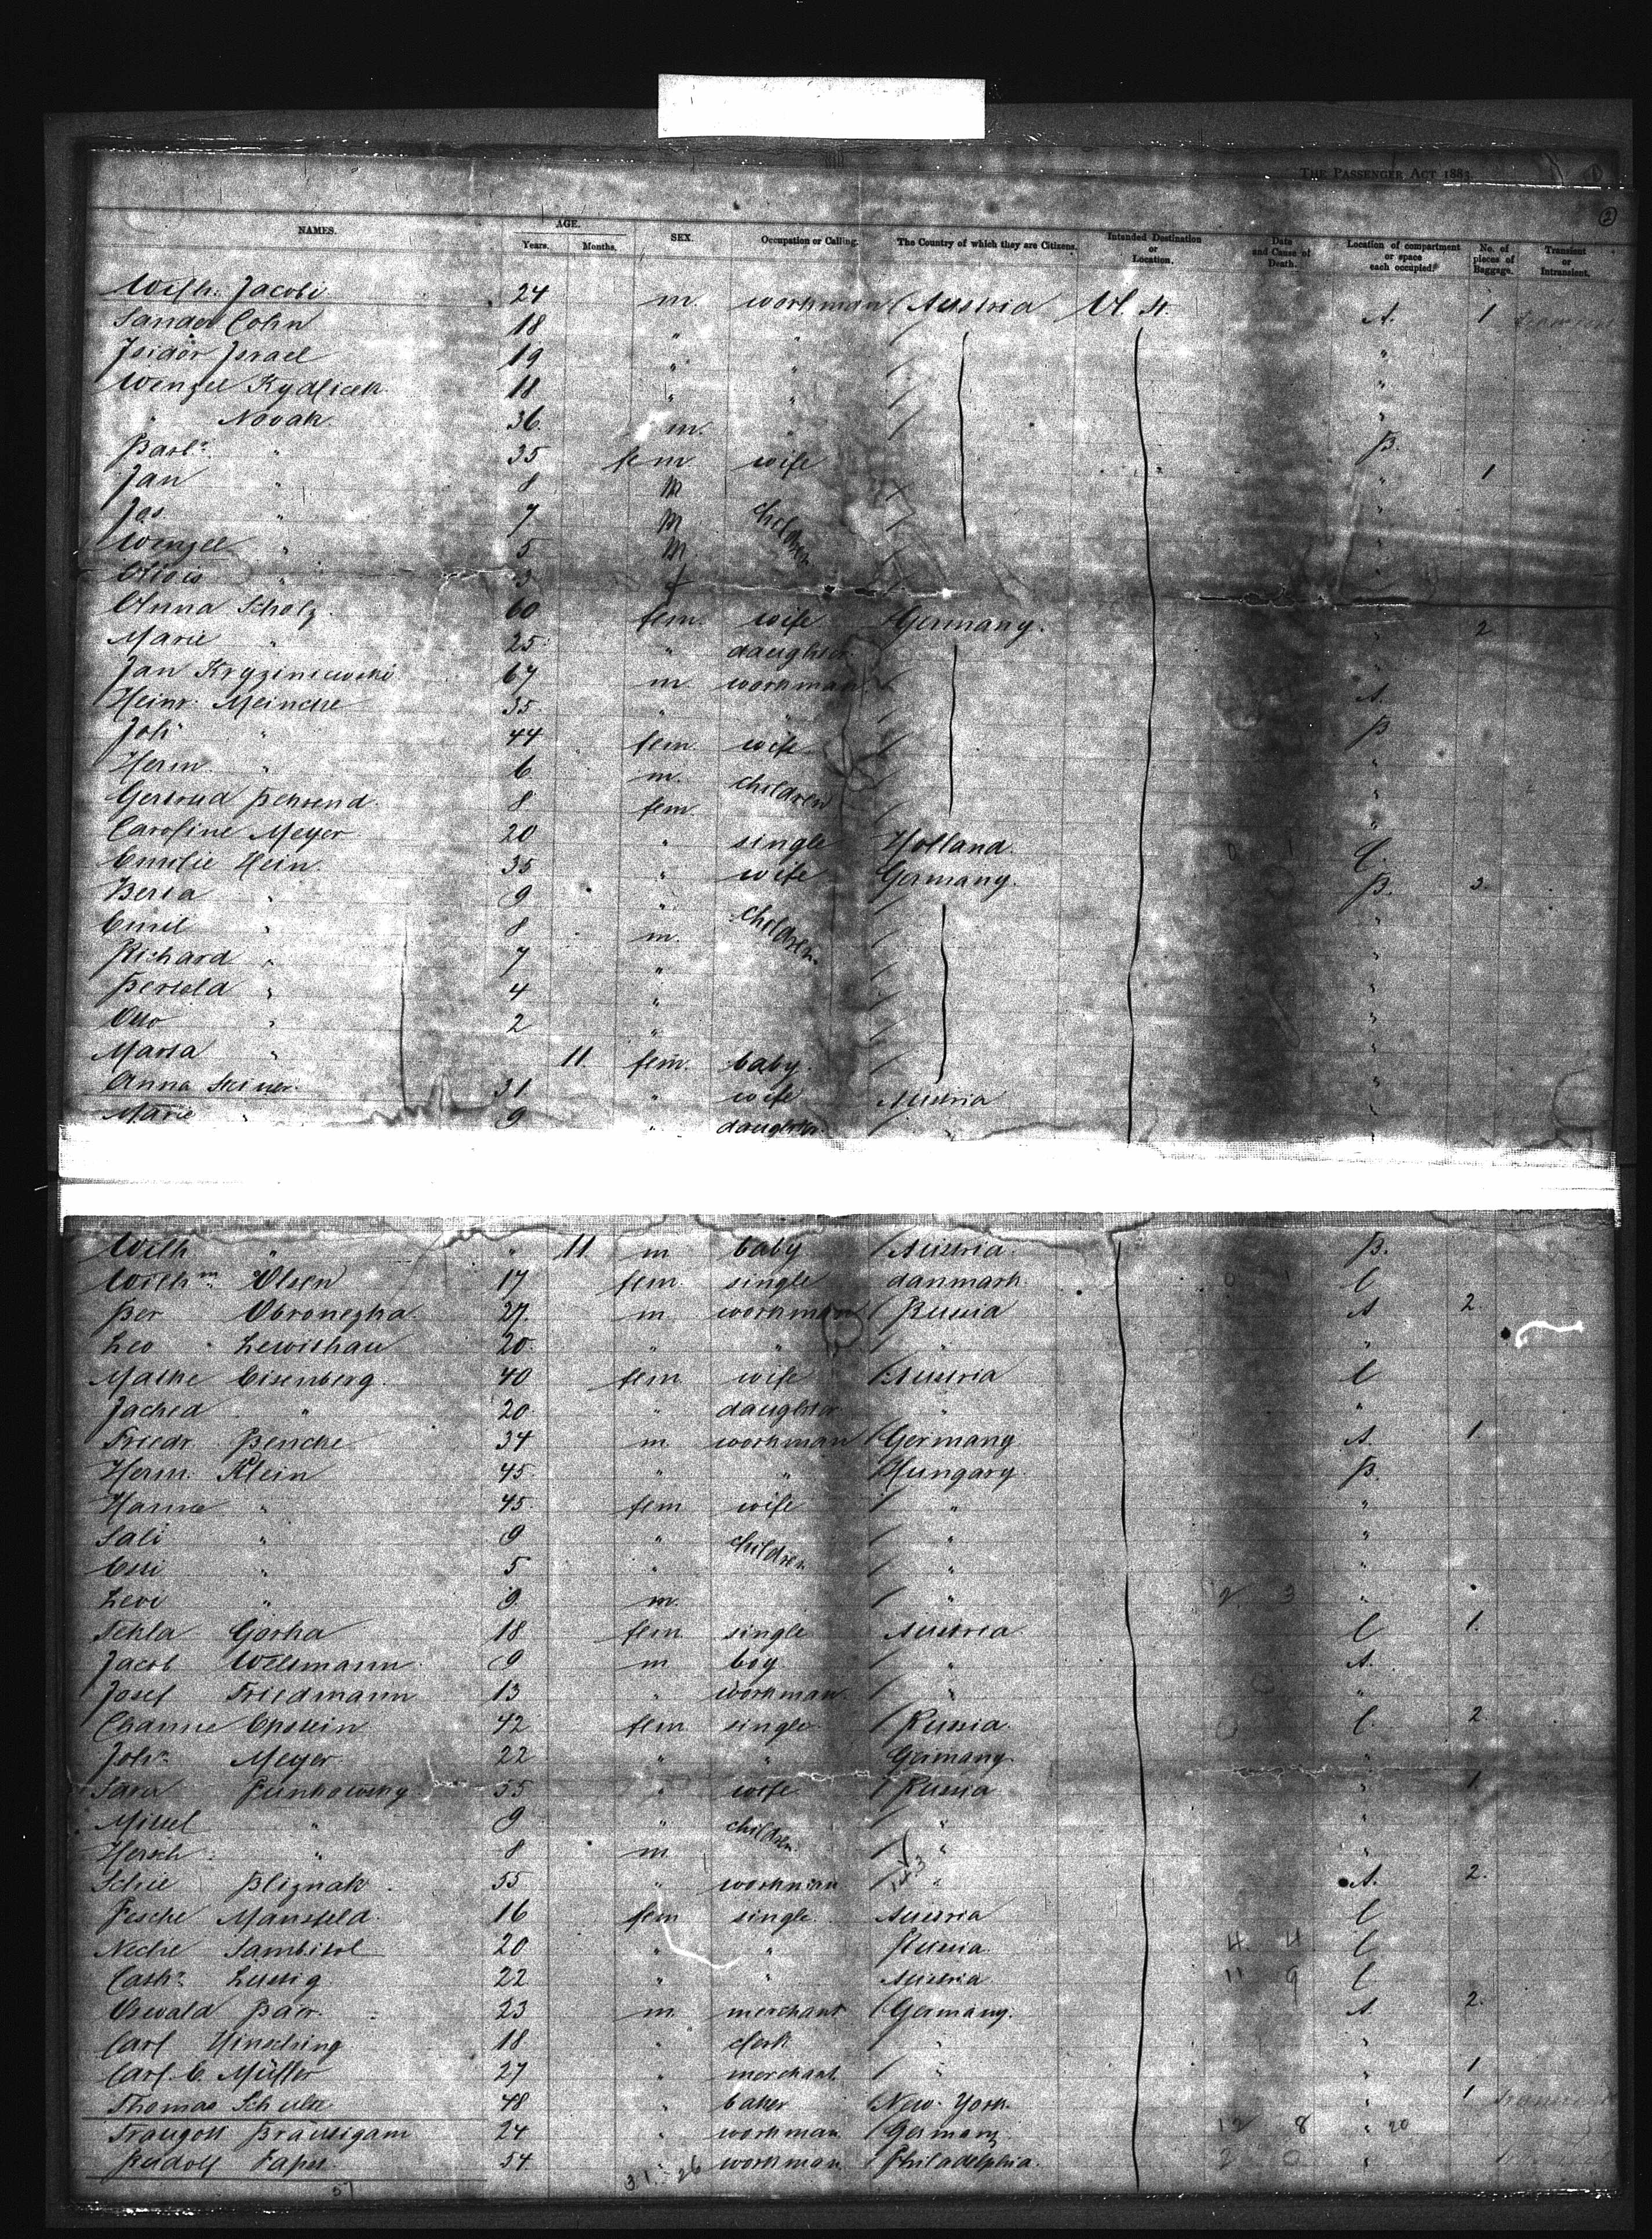 THE PASSENGER ACT 1882.
2
NAMES. AGE. Years. Months. SEX. Occupation or Calling. The Country of which they are Citizens. Intended Destination or Location. Date and Cause of Death. Location of compartment or space each occupied. No. of pieces of Baggage. Transient or Intransient.
Wilh. Jacobi 24 m workman Austria U. St. A. 1
Sander Cohn 18 " " "
Isidor Israel 19 " " "
Wenzel Kydlicek 18 " " "
" Novak 36 m. " B.
Barb. " 35 fem wife " 1
Jan " 8 M "
Jos " 7 M children "
Wenzel " 5 M "
Alois " 3 f "
Anna Scholz 60 fem. wife Germany. " 2
Marie " 25 " daughter "
Jan 67 m workman A.
Heinr. Meincke 35 " " B
Joh. " 44 fem wife "
Herm. " 6 m. children "
Gertrud Behrend 8 fem. "
Caroline Meyer 20 " single Holland C.
Emilie Hein. 35 " wife Germany. B. 3.
Berta " 9 " "
Emil " 8 m. children. "
Richard " 7 " "
Bertold " 4 " "
Otto " 2 " "
Marta " 11 fem. baby. "
Anna Steiner 31 " wife Austria "
Marie " 9 " daughter " "
Wilh " " 11 m baby Austria. B.
Wilhm. Olsen 17 fem. single danmark C
Ber Obronezka 27. m workman Russia A 2.
Leo Lewithau 20. " " " "
Mathe Eisenberg. 40 fem wife Austria C
Jached " 20. " daughter " "
Friedr. Benche 34 m workman Germany A. 1
Herm. Klein 45. " " Hungary B.
Hanna " 45. fem wife " "
Sali " 9 " children " "
Essi " 5 " " "
Levi " 9. m. " 2 3 "
Tekla Gorka 18 fem single Austria C 1.
Jacob Weltmann 9 m boy. " A.
Josef Friedmann 13 " workman. " "
Channe Epstein 42 fem single. Russia. C. 2
Joh. Meyer 22 " " Germany "
Sara Punkowsky 55 " wife Russia " 1.
Mittel " 9 " children " "
Hersch " 8 m. " "
Schie Bliznak 55 " workman " A. 2.
Pesche Mansfeld. 16 fem single Austria C
Nechie 20 " " Russia 4. 4 C
Cath. Lustig 22 " " Austria 11 9 C
Oswald Baer. 23 m. merchant Germany. A 2.
Carl Hinsching 18 " clerk " "
Carl. E. Müller 27 " merchant " " 1
Thomas Schulte 48 " baker New-York. " 1
Traugott Bräutigam 24 " workman Germany 12 8 " 20
Rudolf Papst 54. " workman Philadelphia. 2 0 "
57 31. 26